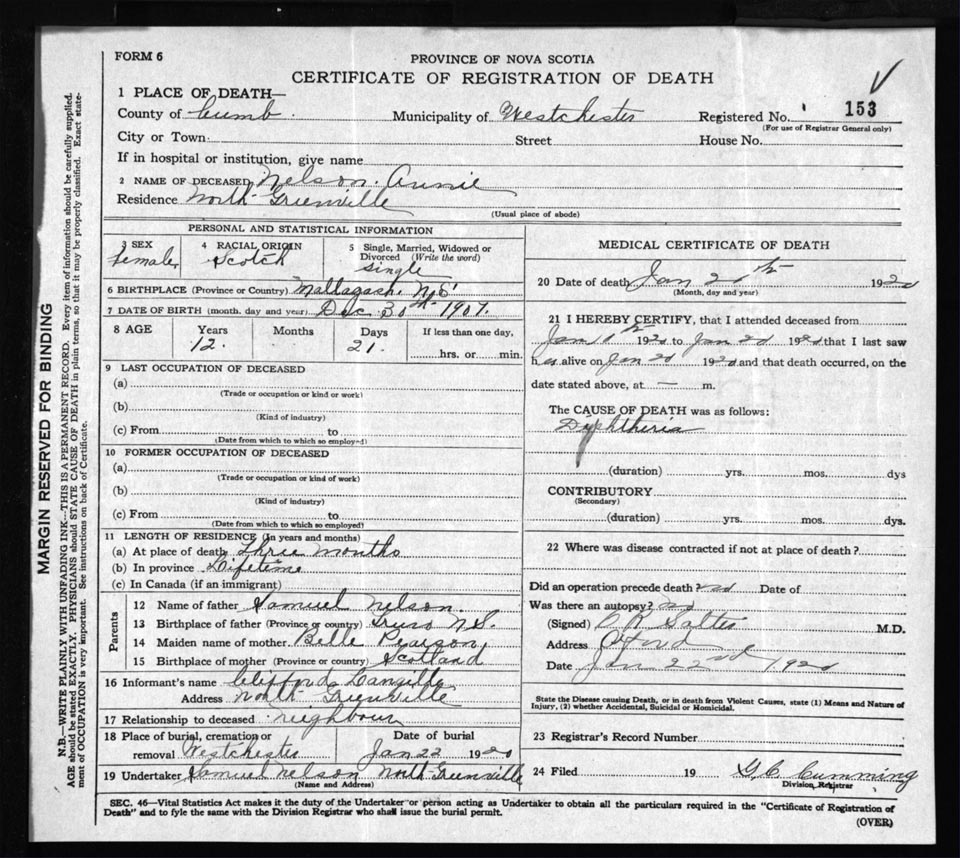 FORM 6
PROVINCE OF NOVA SCOTIA
CERTIFICATE OF REGISTRATION OF DEATH
1 PLACE OF DEATH—
County of Cumb. Municipality of Westchester Registered No. 153
(For use of Registrar General only)
City or Town Street House No.
If in hospital or institution, give name
2 NAME OF DECEASED Nelson Annie
Residence North Greenville
(Usual place of abode)
PERSONAL AND STATISTICAL INFORMATION
3 SEX 4 RACIAL ORIGIN 5 Single, Married, Widowed or Divorced (Write the word)
female Scotch single
6 BIRTHPLACE (Province or Country) N.S.
7 DATE OF BIRTH (month, day and year) Dec 30th 1907.
8 AGE Years Months Days If less than one day,
12. 21. hrs. or min.
9 LAST OCCUPATION OF DECEASED
(a)
(Trade or occupation or kind or work)
(b)
(Kind of industry)
(c) From to
(Date from which to which so employed)
10 FORMER OCCUPATION OF DECEASED
(a)
(Trade or occupation or kind of work)
(b)
(Kind of industry)
(c) From to
(Date from which to which so employed)
11 LENGTH OF RESIDENCE (In years and months)
(a) At place of death three months
(b) In province Lifetime
(c) In Canada (if an immigrant)
Parents
12 Name of father Samuel Nelson.
13 Birthplace of father (Province or country) Truro N.S.
14 Maiden name of mother Belle Pearson
15 Birthplace of mother (Province or country) Scotland
16 Informant's name Clifford Langille
Address North Greenville
17 Relationship to deceased neighbour
18 Place of burial, cremation or Date of burial
removal Westchester Jan 22 1920
19 Undertaker Samuel Nelson North Greenville
(Name and Address)
MEDICAL CERTIFICATE OF DEATH
20 Date of death Jan 20th 1920
(Month, day and year)
21 I HEREBY CERTIFY, that I attended deceased from
Jan 1920 to Jan 20 1920 that I last saw
her alive on Jan 20 1920 and that death occurred, on the
date stated above, at — m.
The CAUSE OF DEATH was as follows:
Diphtheria
(duration) yrs. mos. dys
CONTRIBUTORY
(Secondary)
(duration) yrs. mos. dys.
22 Where was disease contracted if not at place of death?
Did an operation precede death? no Date of
Was there an autopsy? no
(Signed) M.D.
Address Oxford
Date Jan 22nd 1920
State the Disease causing Death, or in death from Violent Causes, state (1) Means and Nature of
Injury, (2) whether Accidental, Suicidal or Homicidal.
23 Registrar's Record Number
24 Filed 19 G.C. Cumming
Division Registrar
SEC. 46—Vital Statistics Act makes it the duty of the Undertaker or person acting as Undertaker to obtain all the particulars required in the "Certificate of Registration of
Death" and to fyle the same with the Division Registrar who shall issue the burial permit.
(OVER)
MARGIN RESERVED FOR BINDING
N.B.—WRITE PLAINLY WITH UNFADING INK—THIS IS A PERMANENT RECORD. Every item of information should be carefully supplied.
AGE should be stated EXACTLY. PHYSICIANS should STATE CAUSE OF DEATH in plain terms, so that it may be properly classified. Exact state-
ment of OCCUPATION is very important. See instructions on back of Certificate.